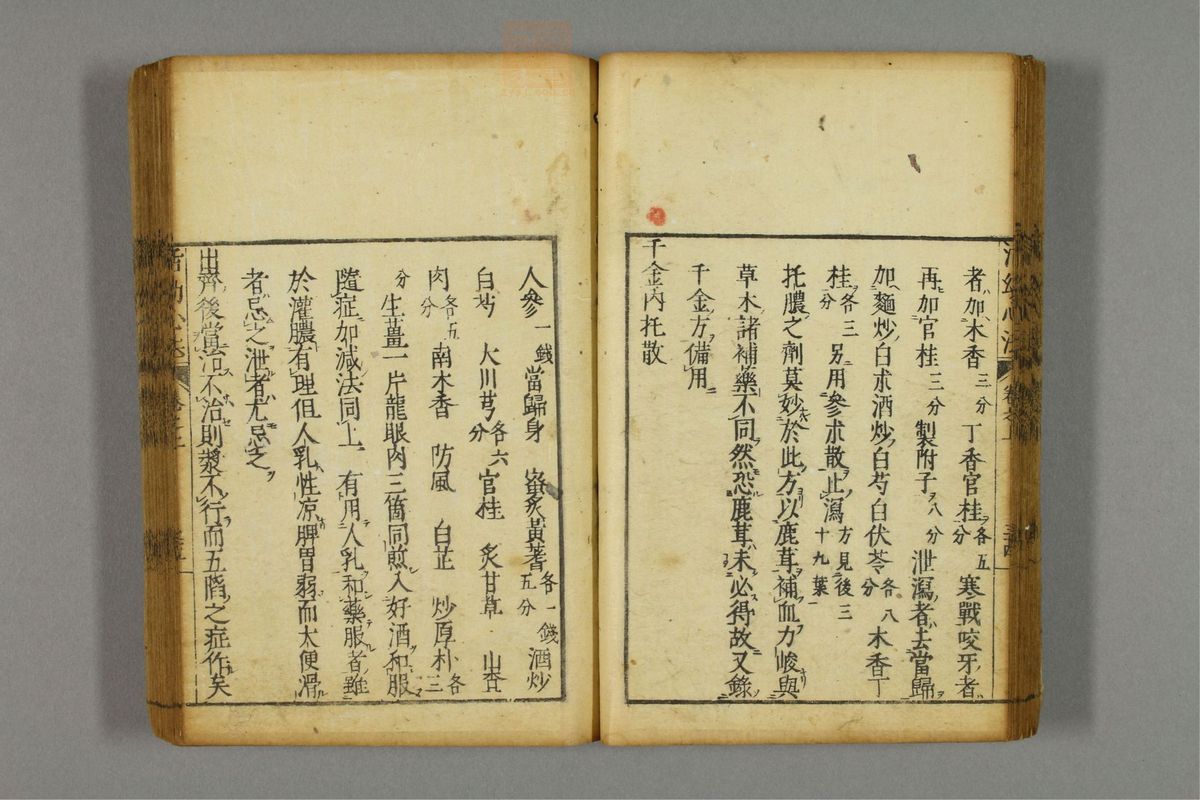 者加木香三分 丁香官桂各五分 寒戰咬牙者
再加官桂三分 製附子八分 泄瀉者去當歸
加麵炒白朮酒炒白芍白伏苓各八分 木香丁
桂各三分 另用參朮散止瀉方見後三十九葉
托膿之劑莫妙於此方以鹿茸補血力峻與
草木諸補藥不同然恐鹿茸未必得故又錄
千金方備用
千金內托散
人參一錢 當歸身 蜜炙黃蓍各一錢五分 酒炒
白芍 大川芎各六分 官桂 炙甘草 山查
肉各五分 南木香 防風 白芷 炒厚朴各三
分 生薑一片龍眼肉三箇同煎入好酒和服
隨症加減法同上 有用人乳和藥服者雖
於灌膿有理但人乳性凉脾胃弱而大便滑
者忌之泄者尤忌之
出齊後當治不治則漿不行而五陷之症作矣